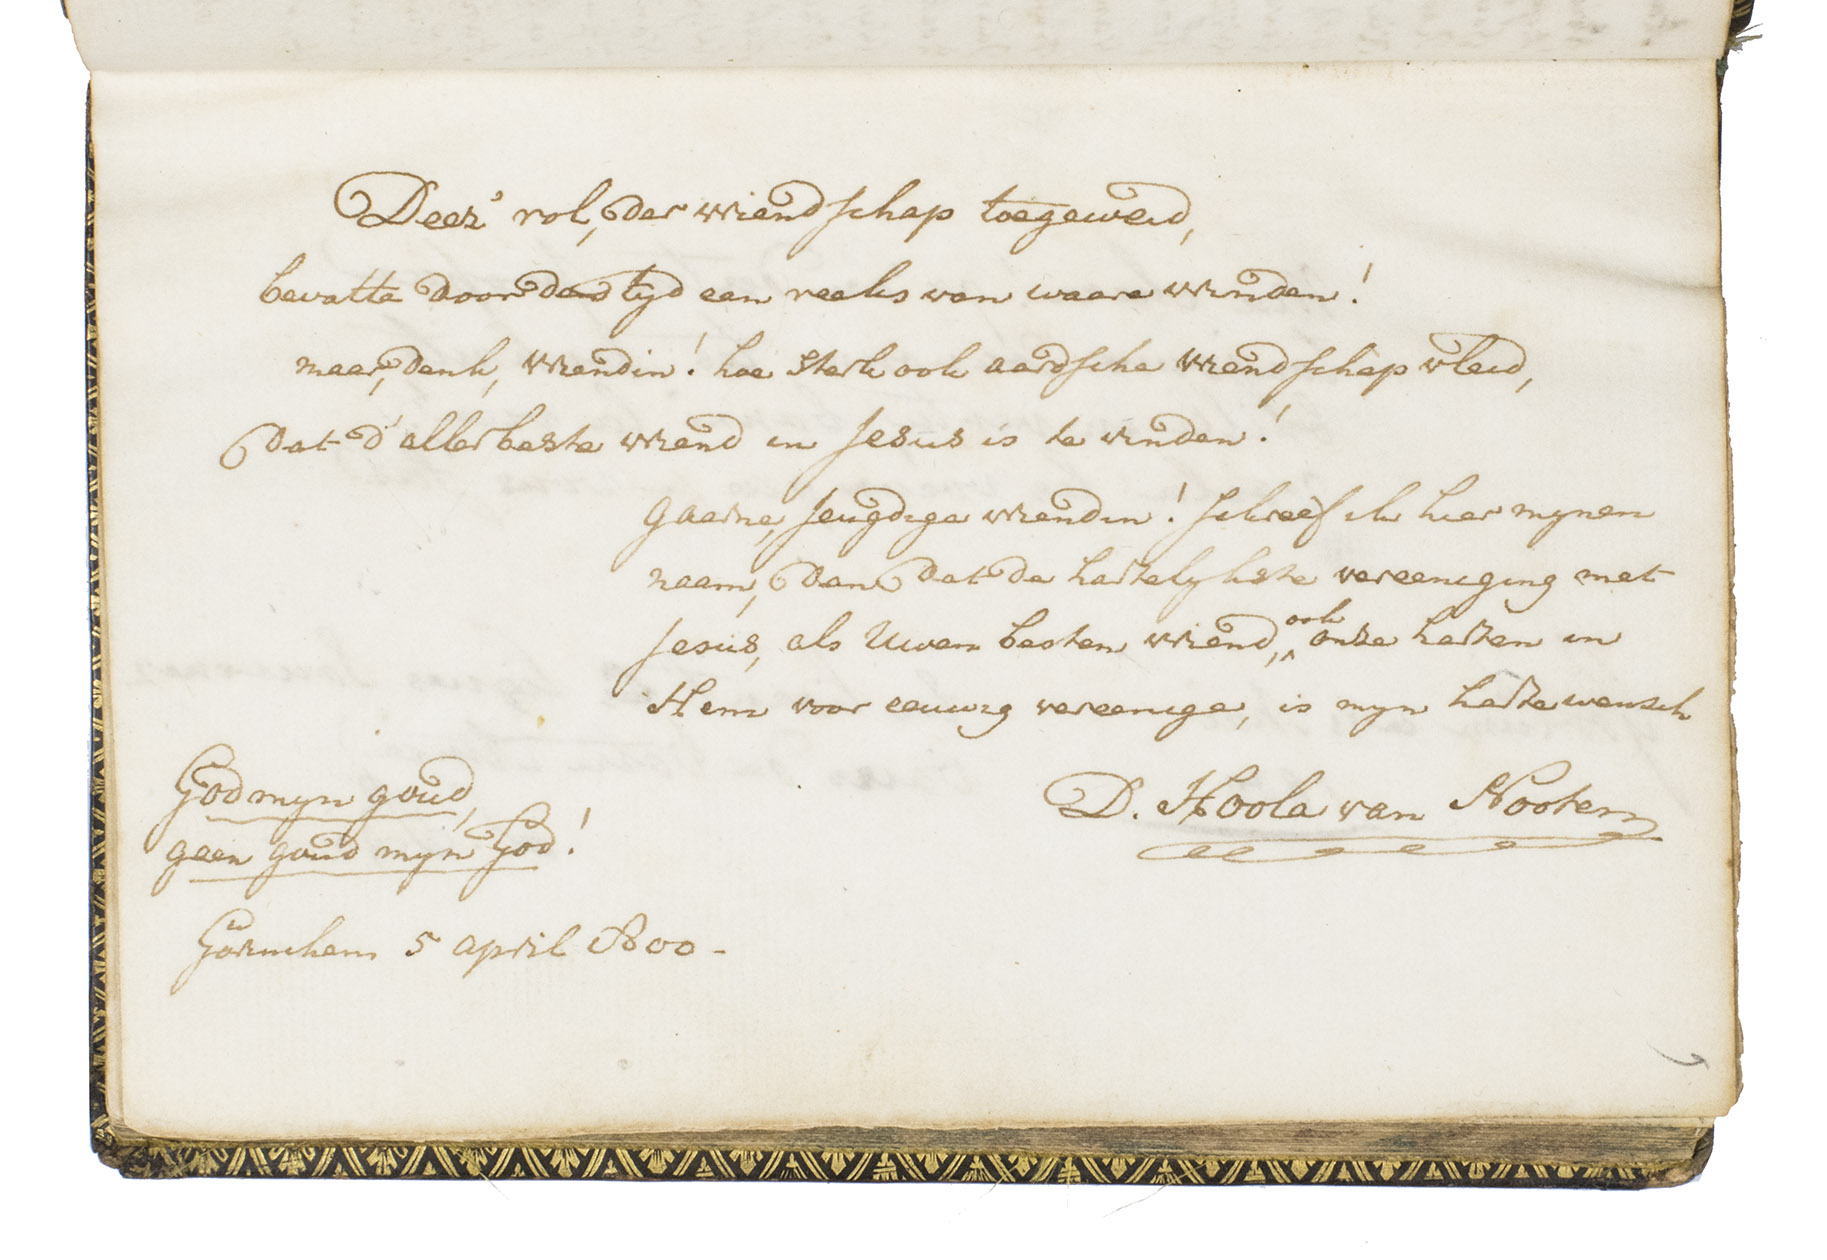 Deez' rol, der vriendschap toegeweid,
bevatte door den tyd een reeks van waare vrinden!
maar, denk, vriendin! hoe sterk ook aardsche vriendschap vleid,
dat d'allerbeste vriend in Jesus is te vinden!
gaarne, jeugdige vriendin! schreef ik hier mynen
naam, dan dat de hartelykste vereeniging met
Jesus, als Uwen besten vriend, ook onze harten in
Hem voor eeuwig vereenige, is myn hartewensch
D. Hoola van Nooten
God myn goud,
geen goud myn God!
Gorinchem 5 april 1800-